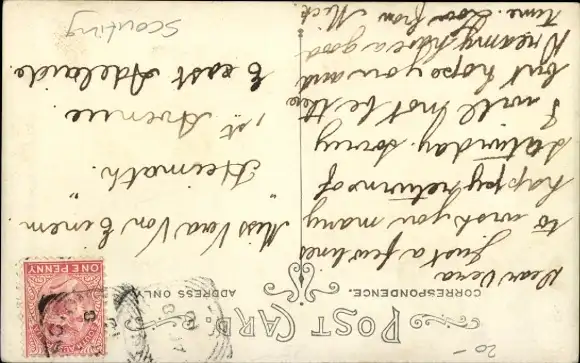 POST CARD.
CORRESPONDENCE.
ADDRESS ONLY.
Dear Vera
just a few lines
to wish you many
happy returns of
Saturday. Sorry
I will not be there
but hope you and
have a good
time. Love from
Miss Vera Von Einem
"Heimath"
1st Avenue
East Adelaide
ONE PENNY
Scouting
20-